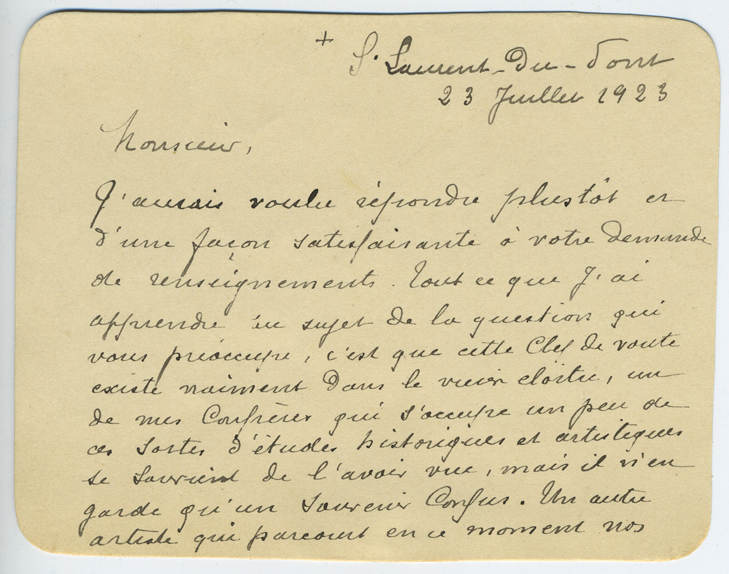 + St Laurent-Du-Pont
23 Juillet 1923
Monsieur,
J'aurais voulu répondre plustôt et
d'une façon satisfaisante à votre demande
de renseignements. Tout ce que j'ai
apprendre au sujet de la question qui
vous préoccupe, c'est que cette Clef de voute
existe vraiment dans le vieux cloître, un
de mes Confrères qui s'occupe un peu de
ces sortes d'études historiques et artistiques
se souvient de l'avoir vue, mais il n'en
garde qu'un souvenir Confus. Un autre
artiste qui parcourt en ce moment nos